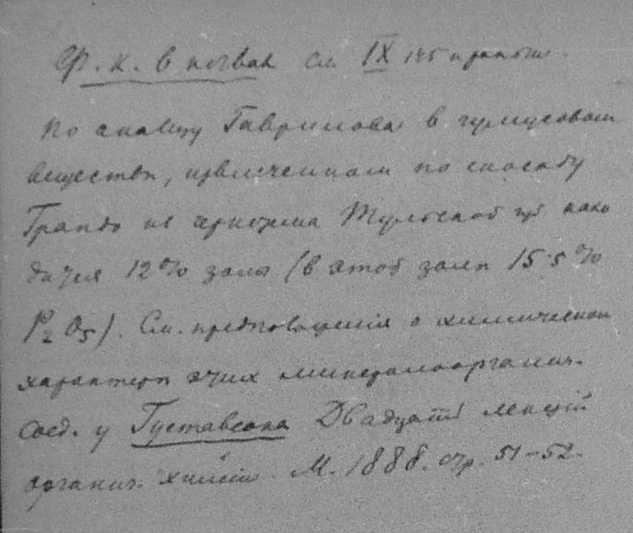 Ф. к. в почвах см. IX 145 и
По анализу Гаврилова в гумусовом
веществѣ, извлеченном по способу
Грандо из чернозема Тульской губ. нахо
дится 12% золы (в этой золѣ 15.5%
P2O5). См. предположенія о химическом
характерѣ этих минералоорганич.
соед. у Густавсона Двадцать лекцій
органич. химіи. М. 1888. стр. 51-52.